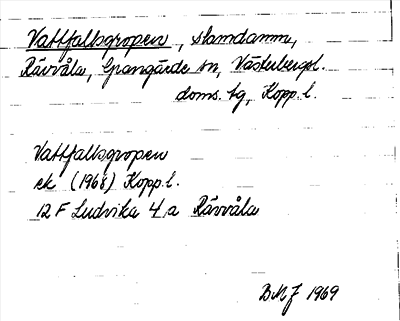 Vattfallsgropen, slamdamm,
Rävvåla, Grangärde sn, Västerbergsl.
doms. tg, Kopp. l.
Vattfallsgropen
ek (1968) Kopp. l.
12 F Ludvika 4 a Rävvåla
BMJ 1969